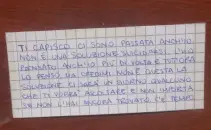 TI CAPISCO. CI SONO PASSATA ANCH'IO.
NON È UNA SOLUZIONE SUICIDARSI. L'HO
PENSATO ANCH'IO PIÙ DI VOLTA E TUTTORA
LO PENSO. MA CREDIMI NON È QUESTA LA
SOLUZIONE. CI SARÀ UN GIORNO QUALCUNO
CHE TI SAPRÀ ASCOLTARE E NON IMPORTA
SE NON L'HAI ANCORA TROVATO. C'È TEMPO